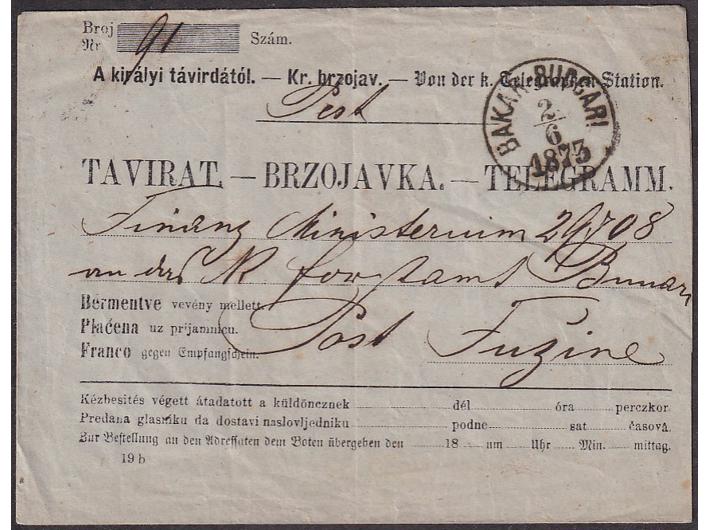 Broj
Nr 91 Szám.
A királyi távirdától. — Kr. brzojav. — Von der k. Telegrafen-Station.
Pest
BAKAR BUCCARI
2/6
1873
TAVIRAT. — BRZOJAVKA. — TELEGRAMM.
Finanz Ministerium 29708
an das K forstamt Buccari
Bérmentve vevény mellett.
Plaćena uz prijamnicu.
Franco gegen Empfangschein.
Post Fuzine
Kézbesités végett átadatott a küldöncznek dél óra perczkor.
Predana glasniku da dostavi naslovljedniku podne sat časová.
Zur Bestellung an den Adressaten dem Boten übergeben den 18 um Uhr Min. mittag.
19 b